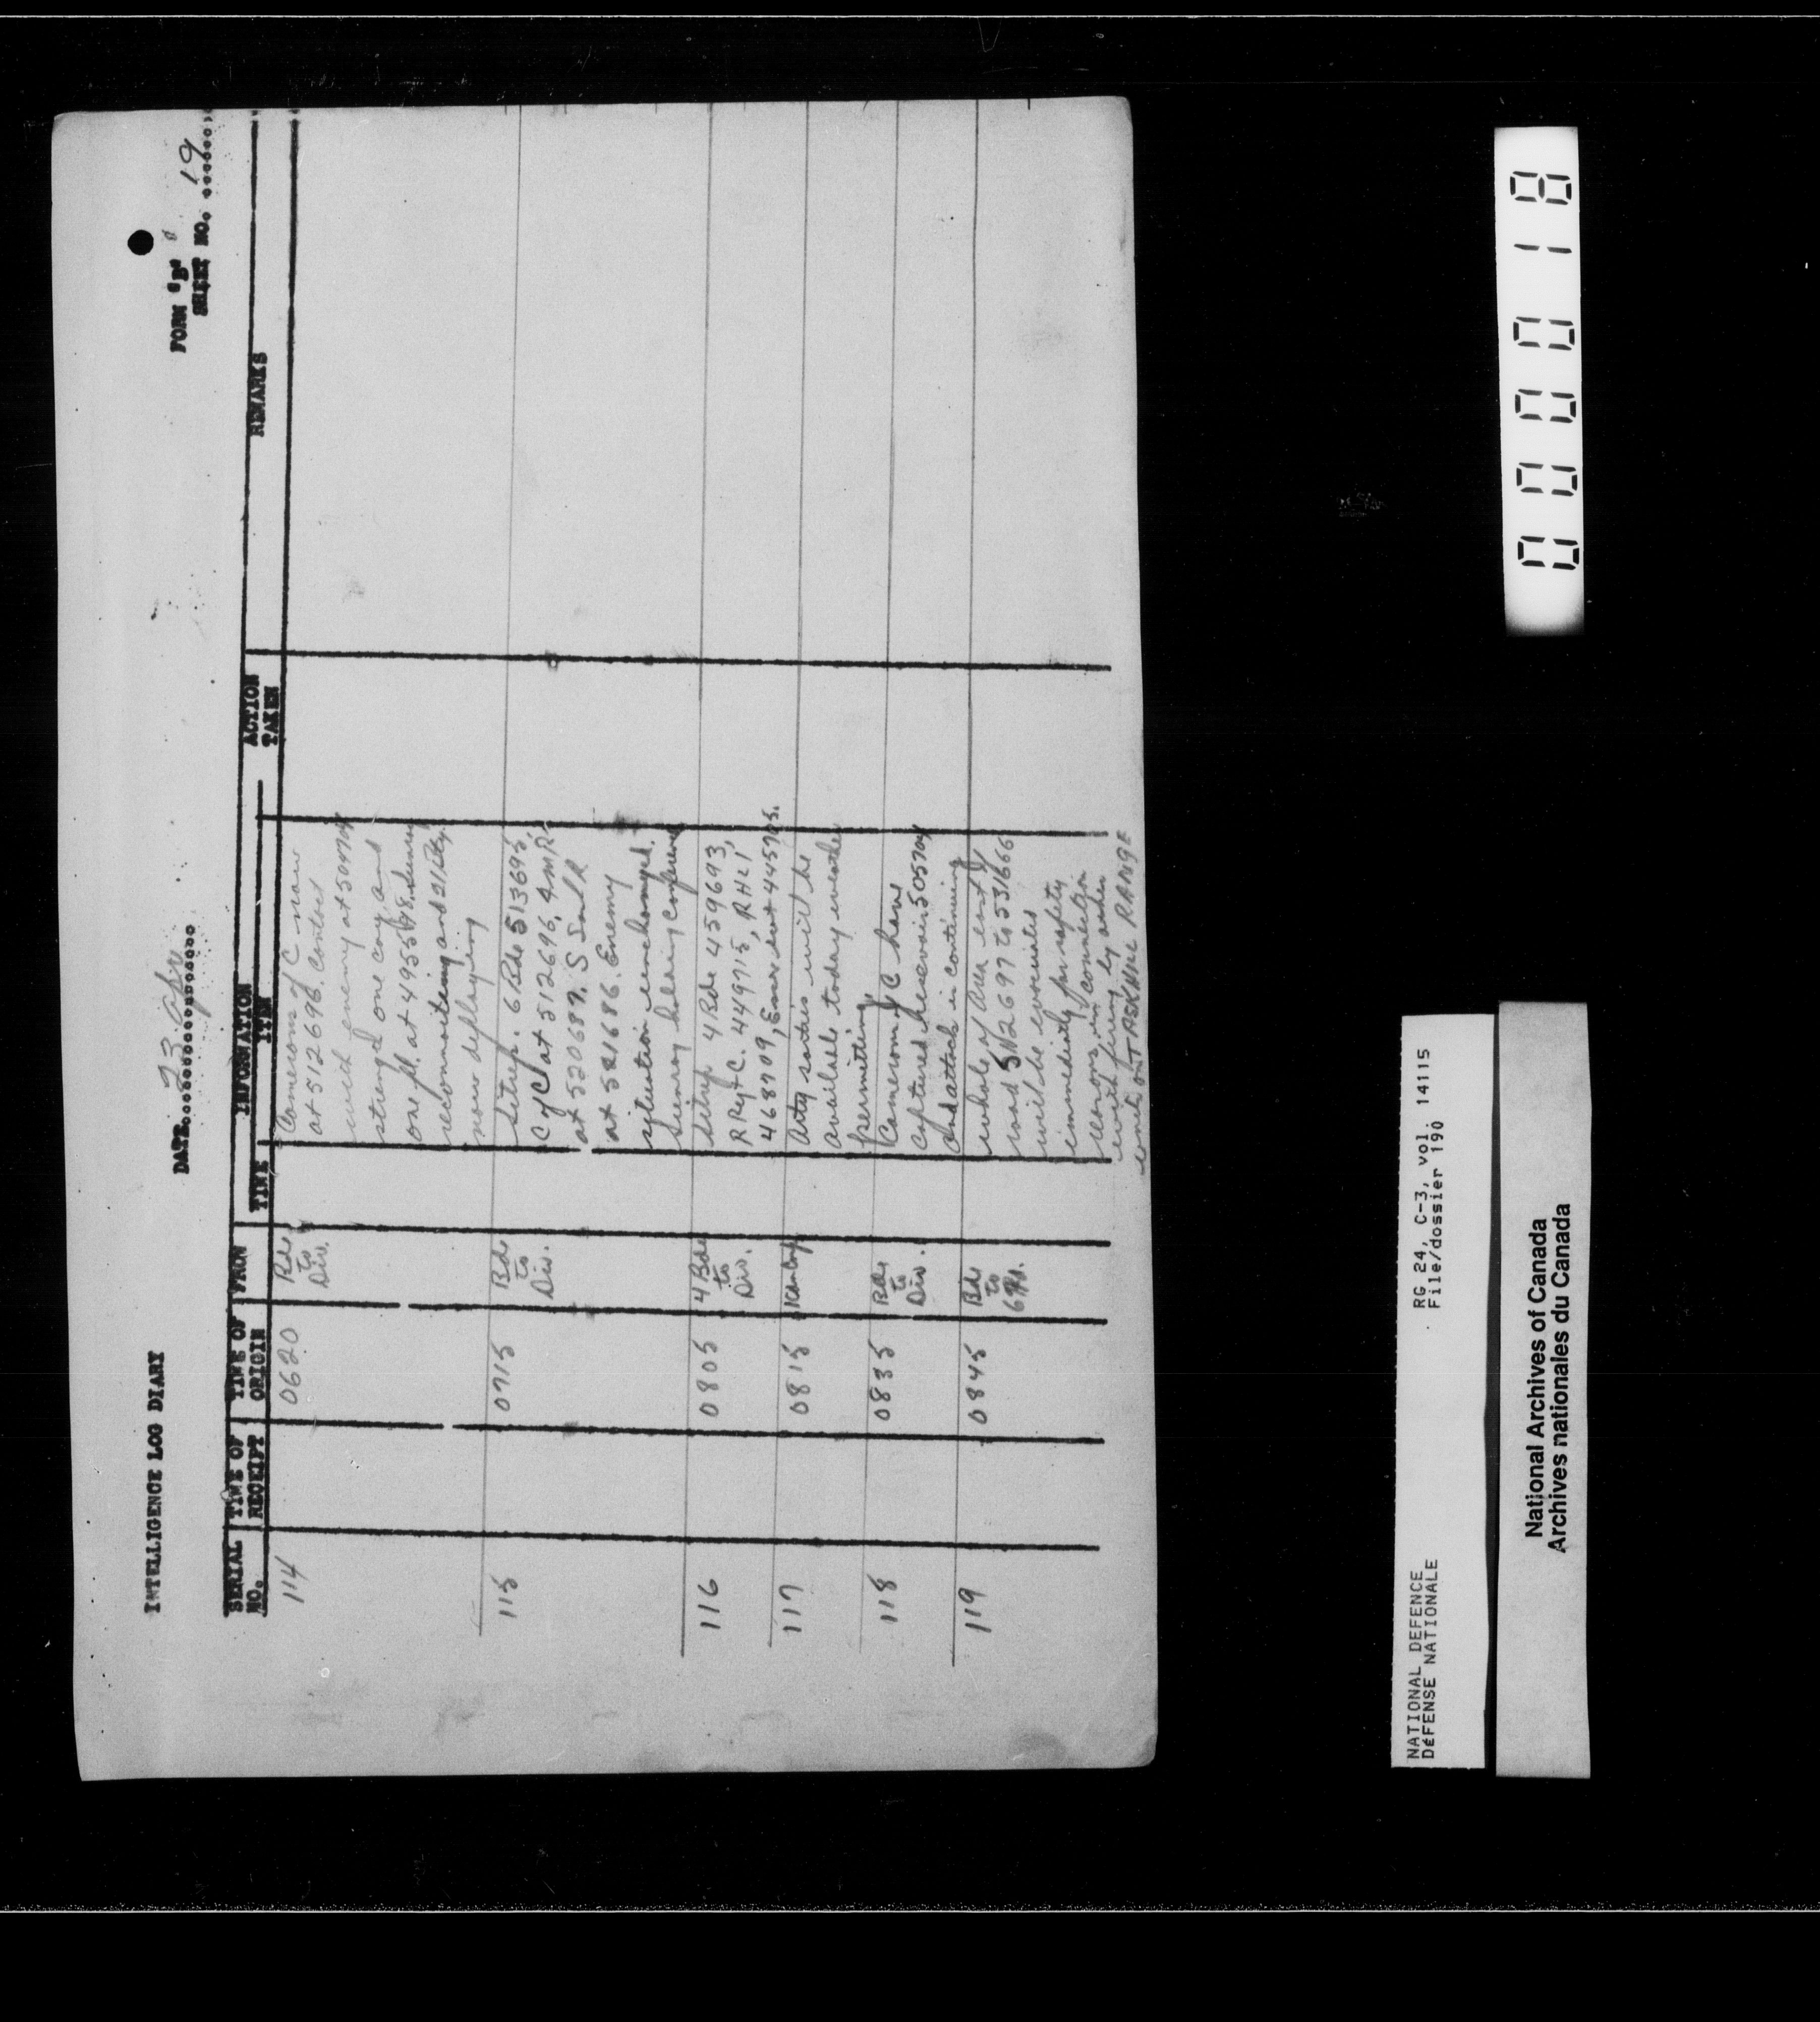 INTELLIGENCE LOG DIARY
FORM "B"
SHEET NO. 19
DATE 23 Apr
SERIAL NO. TIME OF RECEIPT TIME OF ORIGIN FROM INFORMATION TIME ITEM ACTION TAKEN REMARKS
114 0620 Bde to Div. Camerons of C now
at 512696. Contact
with enemy at 504704
strength one coy and
one pl. at 495598. Enemy
reconnoitering and
now deploying
115 0715 Bde to Div. Sitrep. 6 Bde 513695,
C of C at 512696, FMR
at 520687. S Sask R
at 521686. Enemy
situation unchanged.
holding conference
116 0805 4 Bde to Div. Sitrep 4 Bde 459693,
R Regt C. 449715, RHLI
468709, 445705.
117 0815 Arty sorties will be
available today weather
permitting
118 0835 Bde to Div. Camerons of C have
captured reservoir 505704
and attack is continuing
119 0845 Bde to whole of area east of
road 512697 to 531666
will be evacuated
immediately for safety
reasons in connection
with firing by other
units on TASK HILL RANGE
000018
NATIONAL DEFENCE
DÉFENSE NATIONALE
RG 24, C-3, vol. 14115
File/dossier 190
National Archives of Canada
Archives nationales du Canada